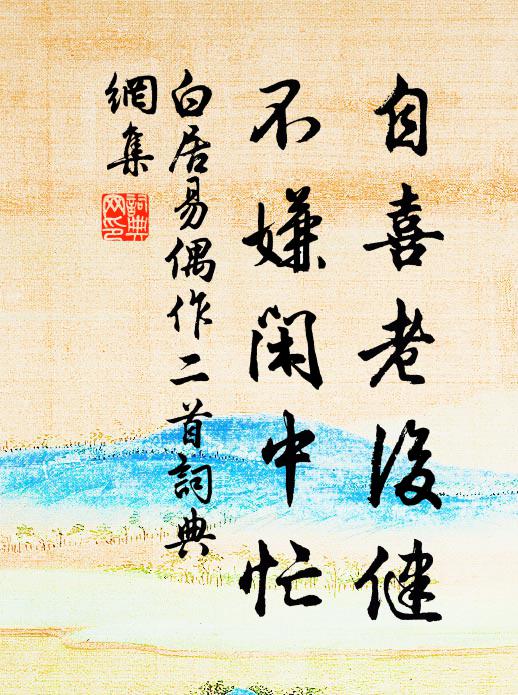 自喜老後健
不嫌閑中忙
白居易偶作二首詞典
網集
詞典
网印